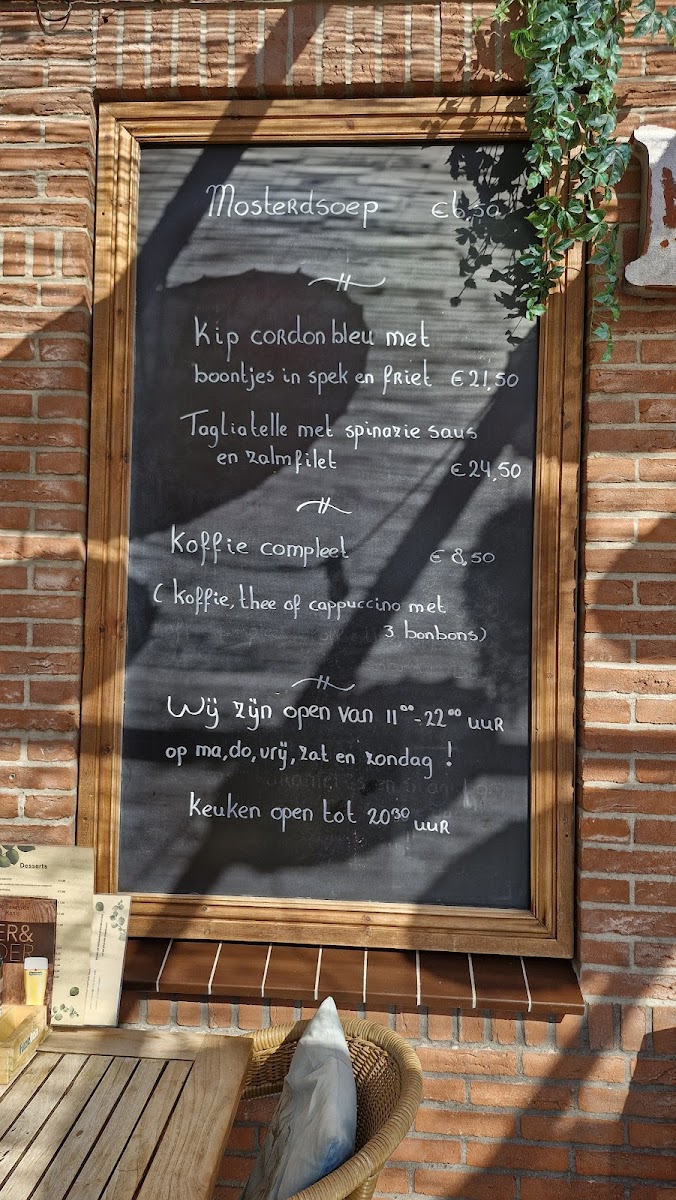 Mosterdsoep €6,50
Kip cordon bleu met
boontjes in spek en friet €21,50
Tagliatelle met spinazie saus
en zalmfilet €24,50
Koffie compleet €8,50
(Koffie, thee of cappuccino met
3 bonbons)
Wij zijn open van 11⁰⁰-22⁰⁰ uur
op ma, do, vrij, zat en zondag !
Keuken open tot 20³⁰ uur
Desserts